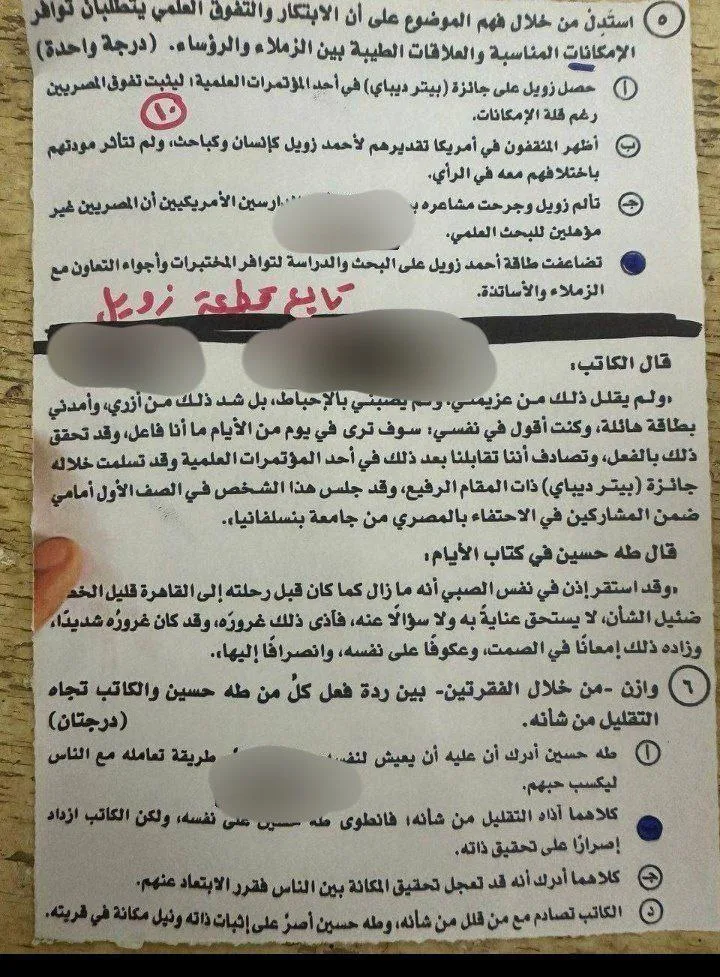 ٥ استَدِلّ من خلال فهم الموضوع على أن الابتكار والتفوق العلمي يتطلبان توافر
الإمكانات المناسبة والعلاقات الطيبة بين الزملاء والرؤساء. (درجة واحدة)
أ حصل زويل على جائزة (بيتر ديباي) في أحد المؤتمرات العلمية؛ ليثبت تفوق المصريين
رغم قلة الإمكانات.
١٠
ب أظهر المثقفون في أمريكا تقديرهم لأحمد زويل كإنسان وكباحث، ولم تتأثر مودتهم
باختلافهم معه في الرأي.
جـ تألم زويل وجرحت مشاعره الدارسين الأمريكيين أن المصريين غير
مؤهلين للبحث العلمي.
تضاعفت طاقة أحمد زويل على البحث والدراسة لتوافر المختبرات وأجواء التعاون مع
الزملاء والأساتذة.
تابع قطعة زويل
قال الكاتب:
«ولم يقلل ذلك من عزيمتي، ولم يصبني بالإحباط، بل شد ذلك من أزري، وأمدني
بطاقة هائلة، وكنت أقول في نفسي: سوف ترى في يوم من الأيام ما أنا فاعل، وقد تحقق
ذلك بالفعل، وتصادف أننا تقابلنا بعد ذلك في أحد المؤتمرات العلمية وقد تسلمت خلاله
جائزة (بيتر ديباي) ذات المقام الرفيع، وقد جلس هذا الشخص في الصف الأول أمامي
ضمن المشاركين في الاحتفاء بالمصري من جامعة بنسلفانيا».
قال طه حسين في كتاب الأيام:
«وقد استقر إذن في نفس الصبي أنه ما زال كما كان قبل رحلته إلى القاهرة قليل الخطر
ضئيل الشأن، لا يستحق عنايةً به ولا سؤالًا عنه، فآذى ذلك غرورَه، وقد كان غرورُه شديدًا،
وزاده ذلك إمعانًا في الصمت، وعكوفًا على نفسه، وانصرافًا إليها».
٦ وازن -من خلال الفقرتين- بين ردة فعل كلٍّ من طه حسين والكاتب تجاه
التقليل من شأنه. (درجتان)
أ طه حسين أدرك أن عليه أن يعيش لنفسه طريقة تعامله مع الناس
ليكسب حبهم.
كلاهما آذاه التقليل من شأنه؛ فانطوى طه حسين على نفسه، ولكن الكاتب ازداد
إصرارًا على تحقيق ذاته.
جـ كلاهما أدرك أنه قد تعجل تحقيق المكانة بين الناس فقرر الابتعاد عنهم.
د الكاتب تصادم مع من قلل من شأنه، وطه حسين أصرَّ على إثبات ذاته ونيل مكانة في قريته.